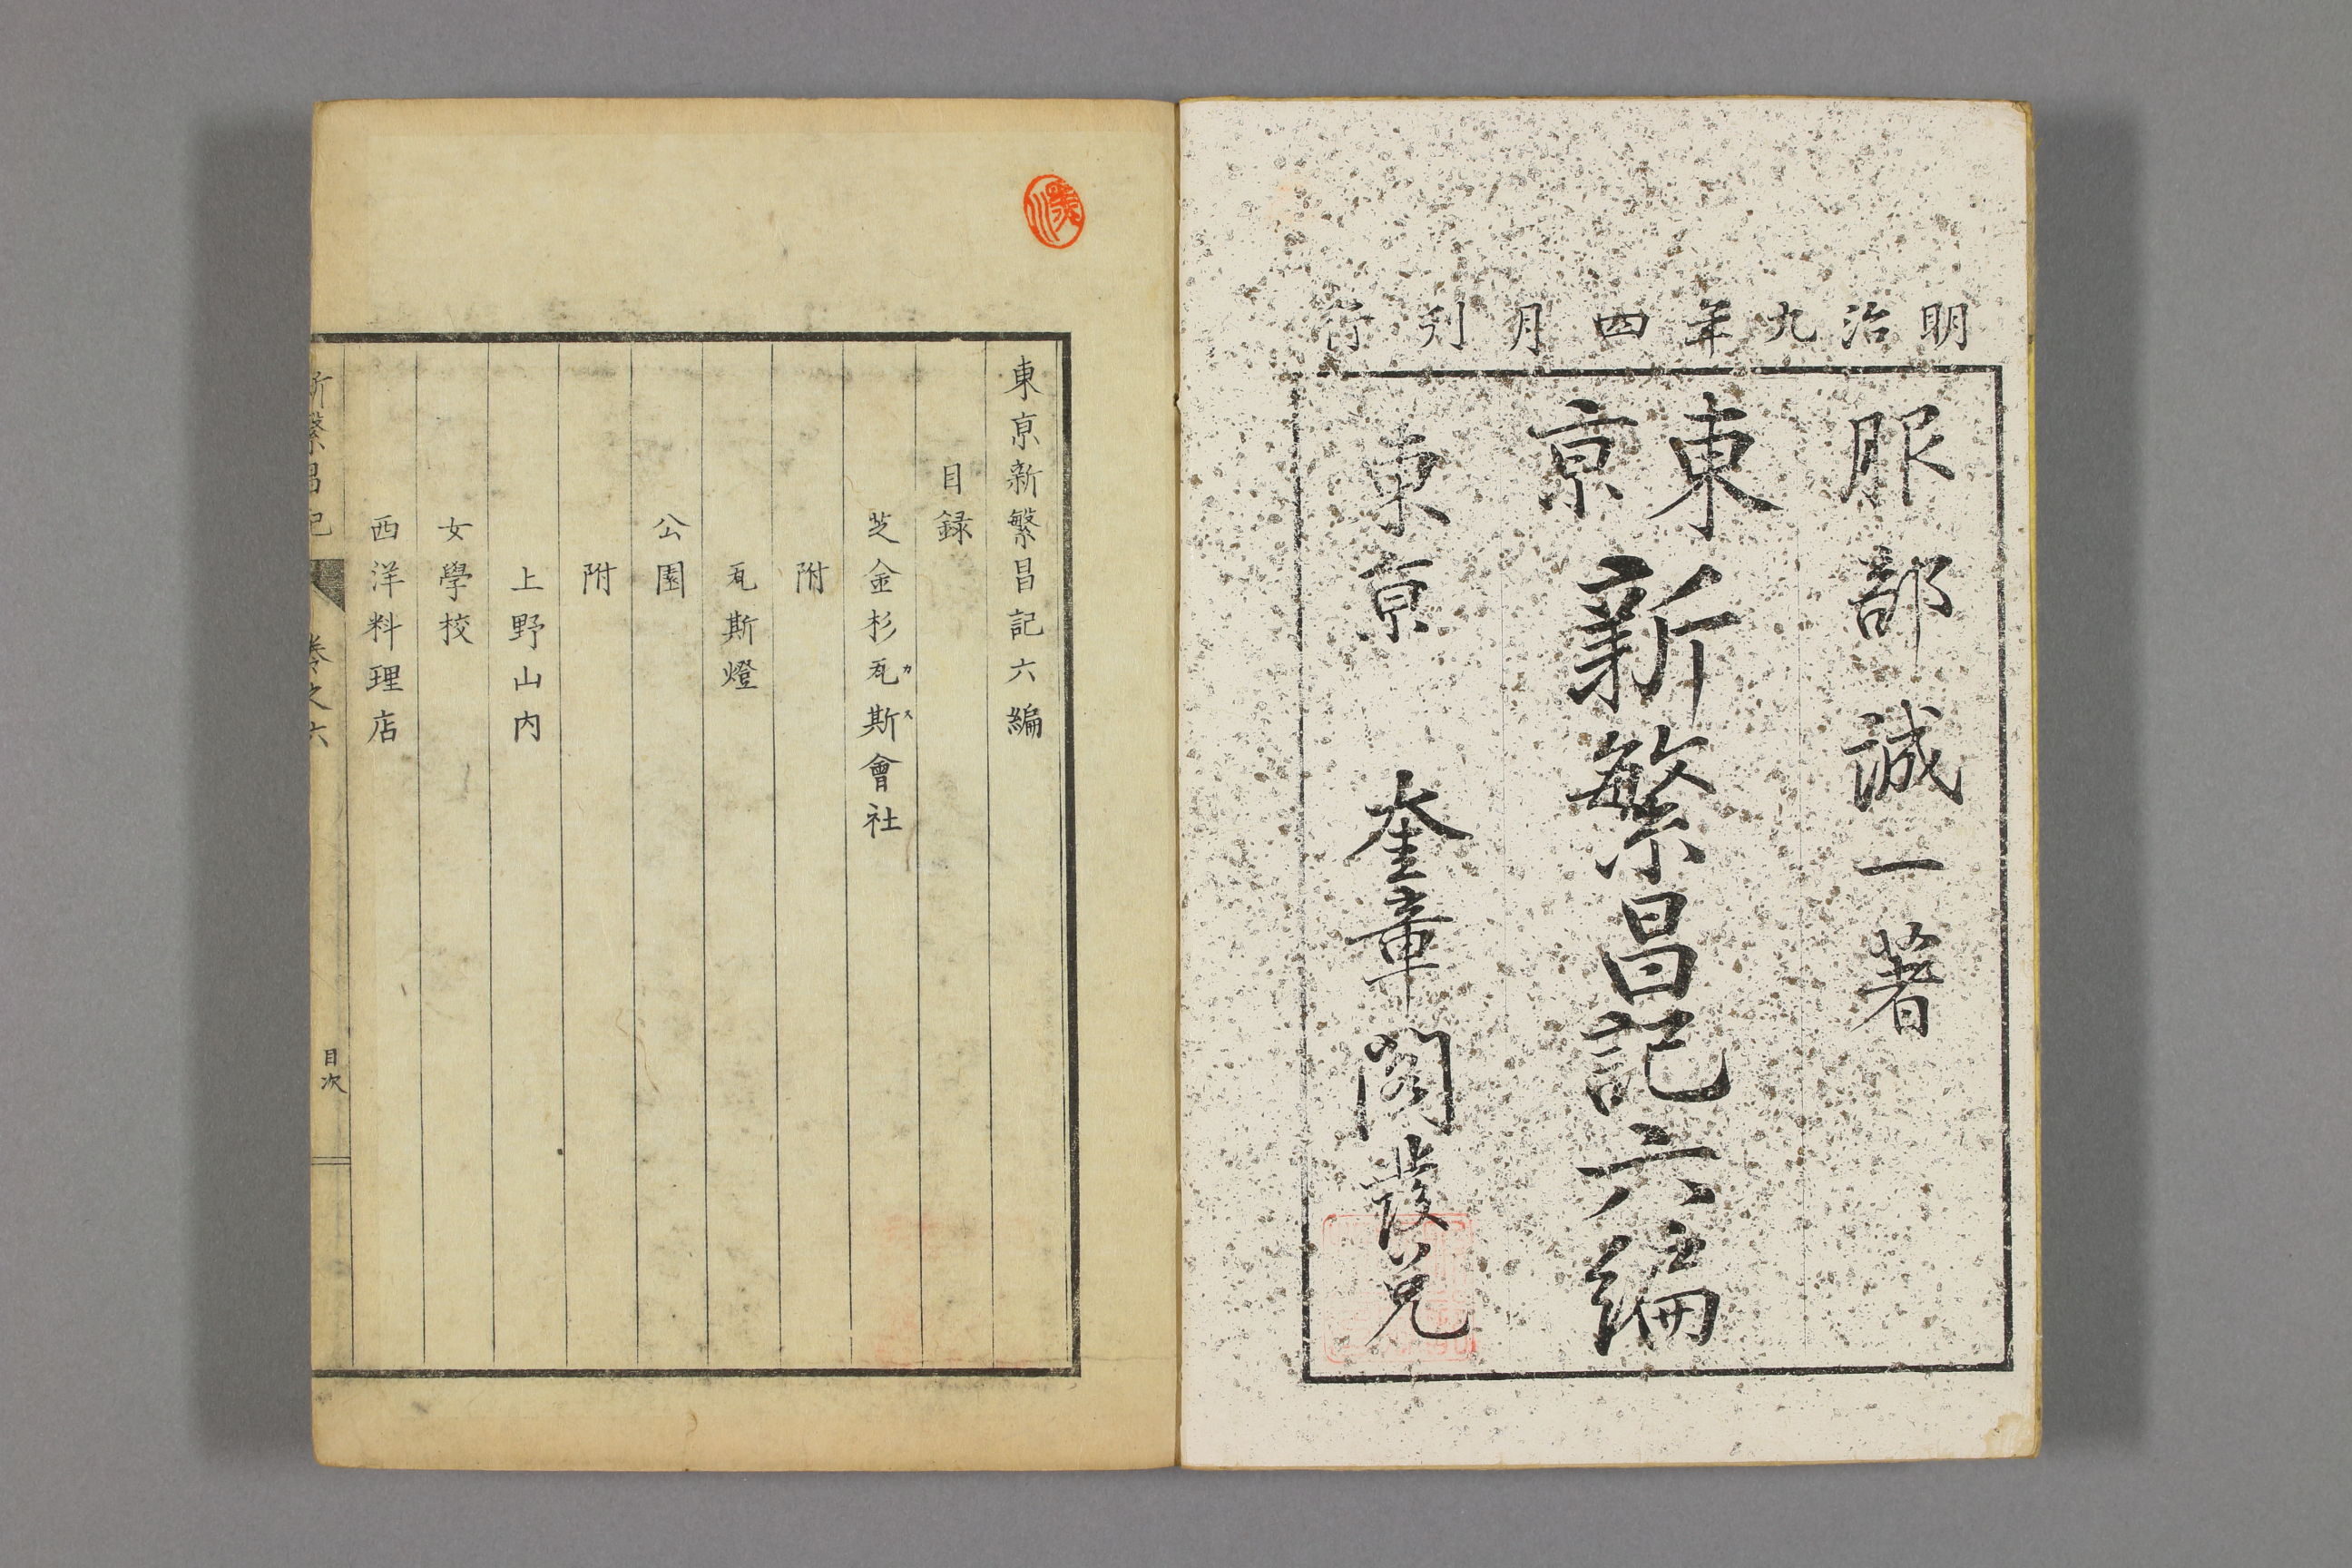 明治九年四月刊行
服部誠一著
東京新繁昌記六編
東京 奎章閣發兌
東京新繁昌記六編
目録
芝金杉瓦斯會社
カス
附
瓦斯燈
公園
附
上野山内
女學校
西洋料理店
新繁昌記 卷之六 目次